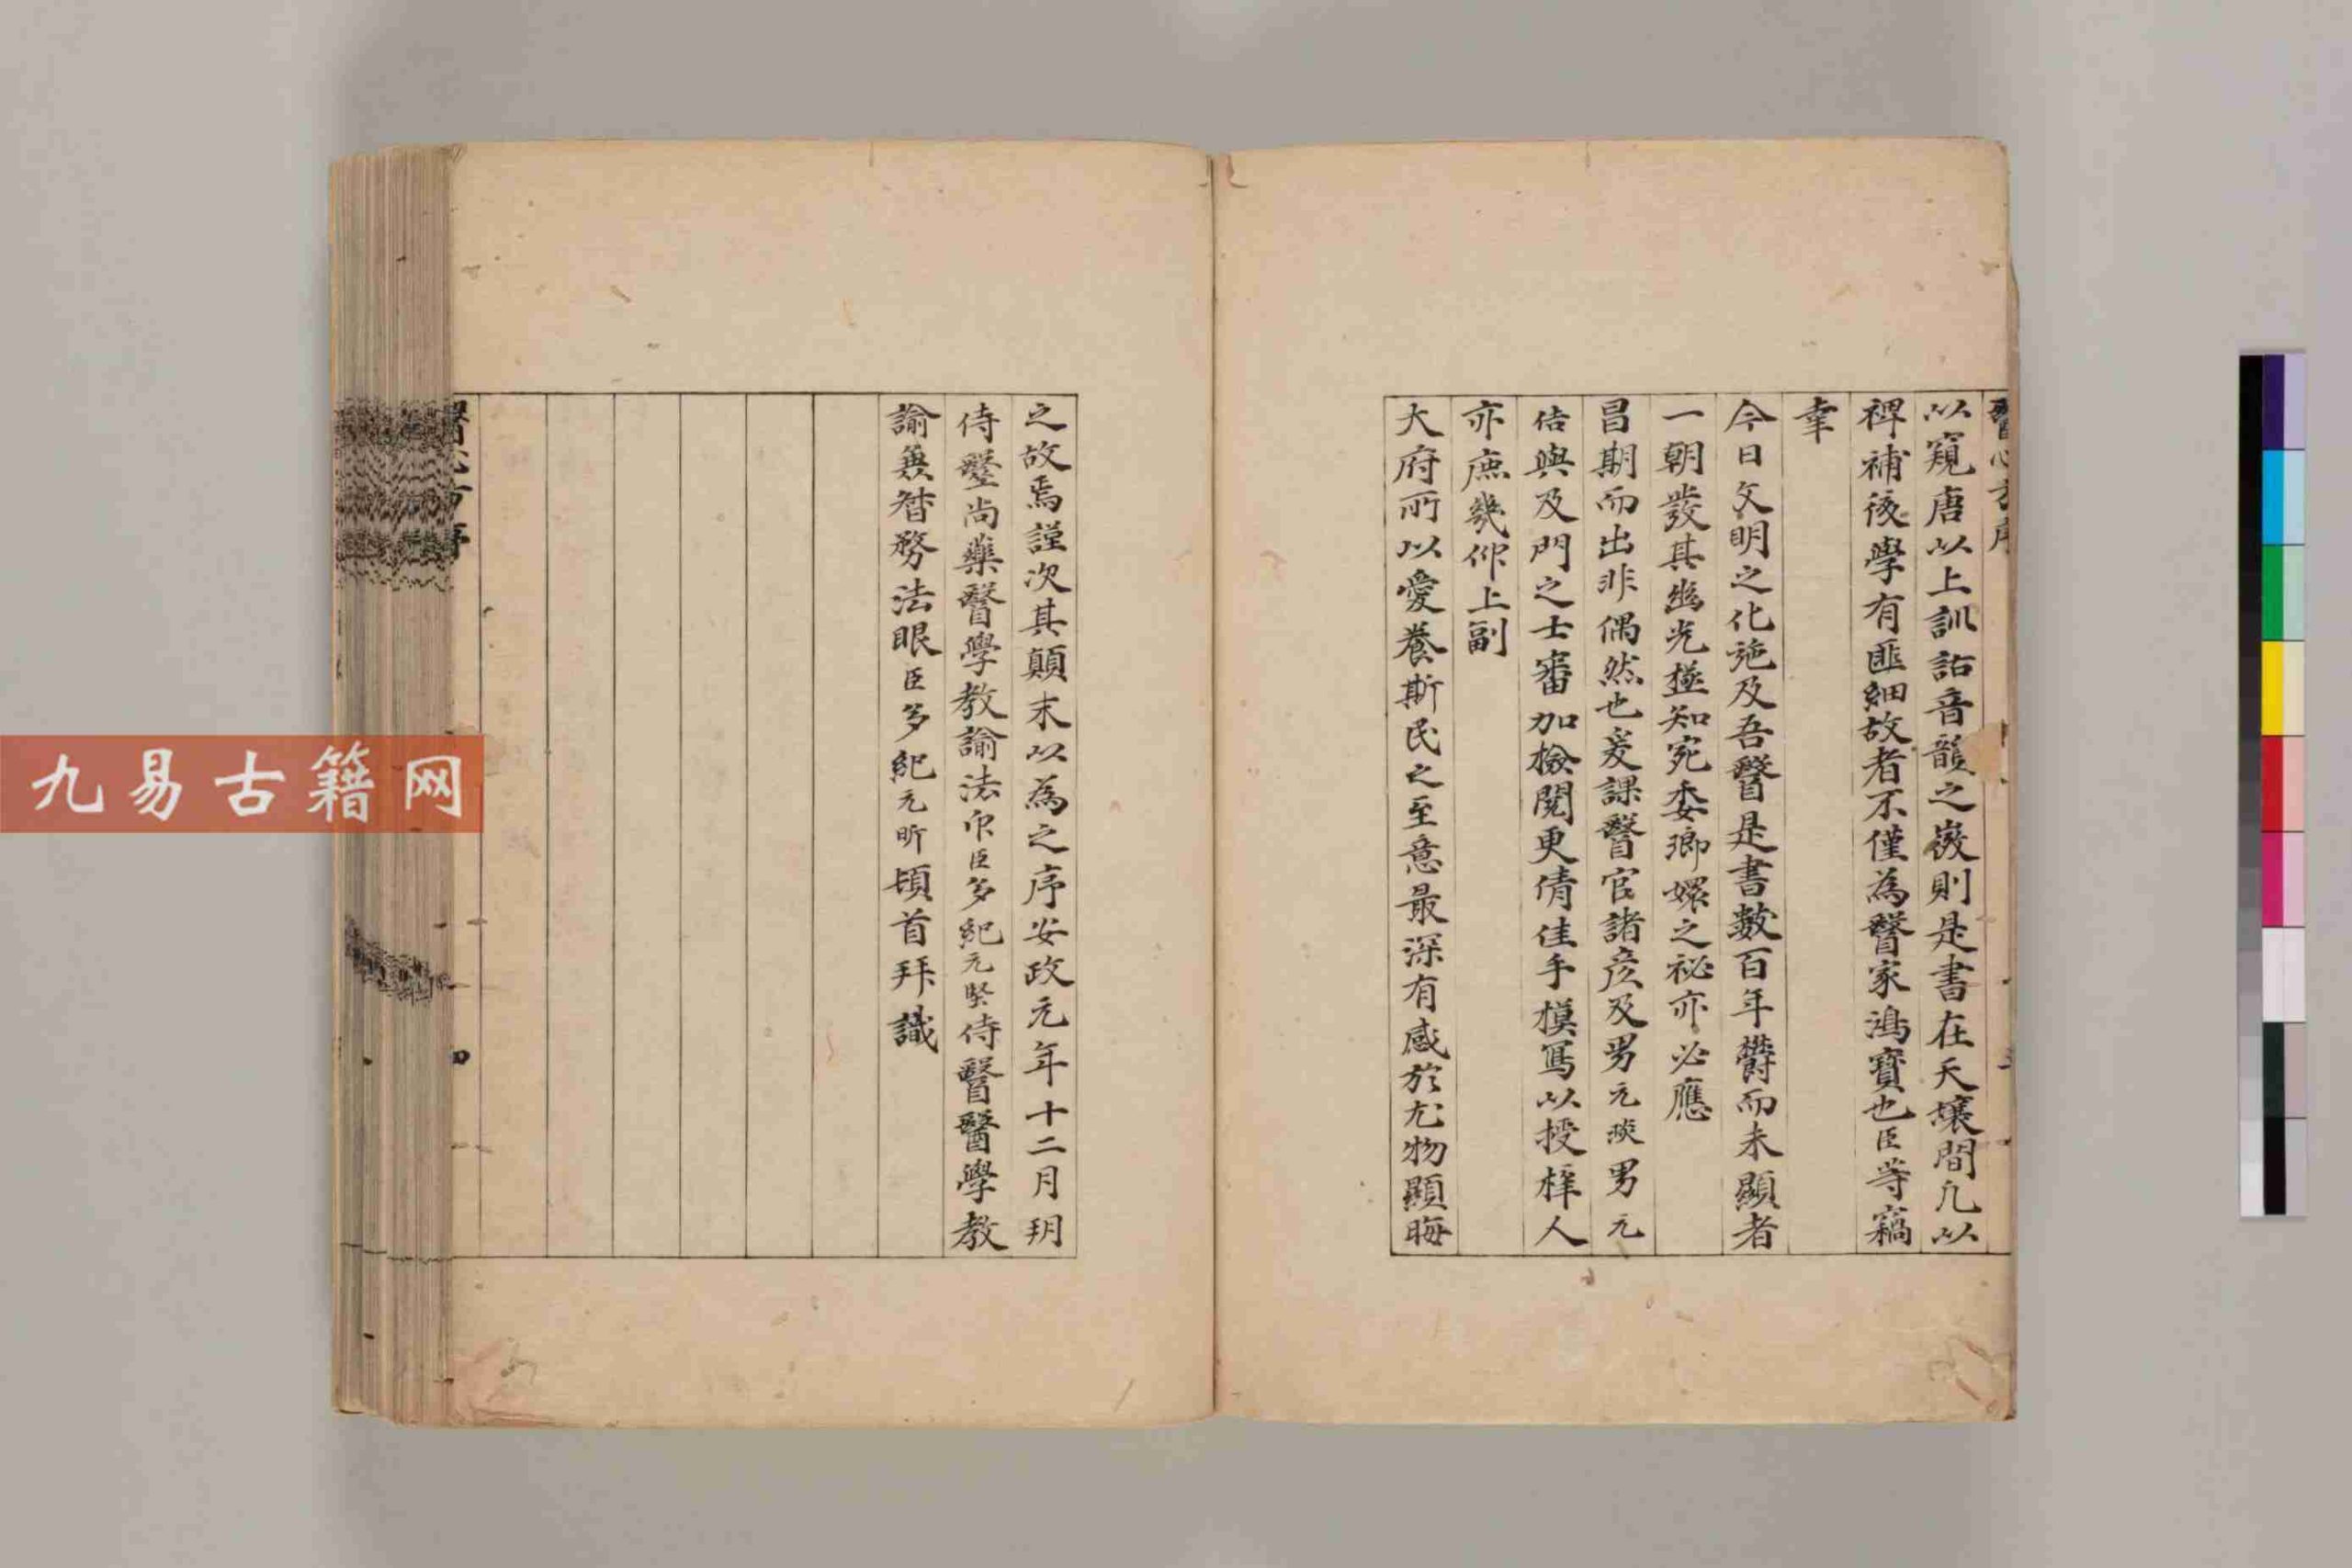 醫心方序
以窺唐以上訓詁音韻之嵗則是書在天壤間凡以
裨補後學有匪細故者不僅為醫家鴻寶也臣等竊
幸
今日文明之化施及吾醫是書數百年欝而未顯者
一朝發其幽光極知宛委瑯嬛之祕亦必應
昌期而出非偶然也爰課醫官諸彦及男元琰男元
佶與及門之士審加檢閱更倩佳手模寫以授梓人
亦庶幾仰上副
大府所以愛養斯民之至意最深有感於尤物顯晦
之故焉謹次其顛末以為之序安政元年十二月玥
侍醫尚藥醫學教諭法印臣多紀元堅侍醫醫學教
諭兼督務法眼臣多紀元昕頓首拜識
四
九易古籍网